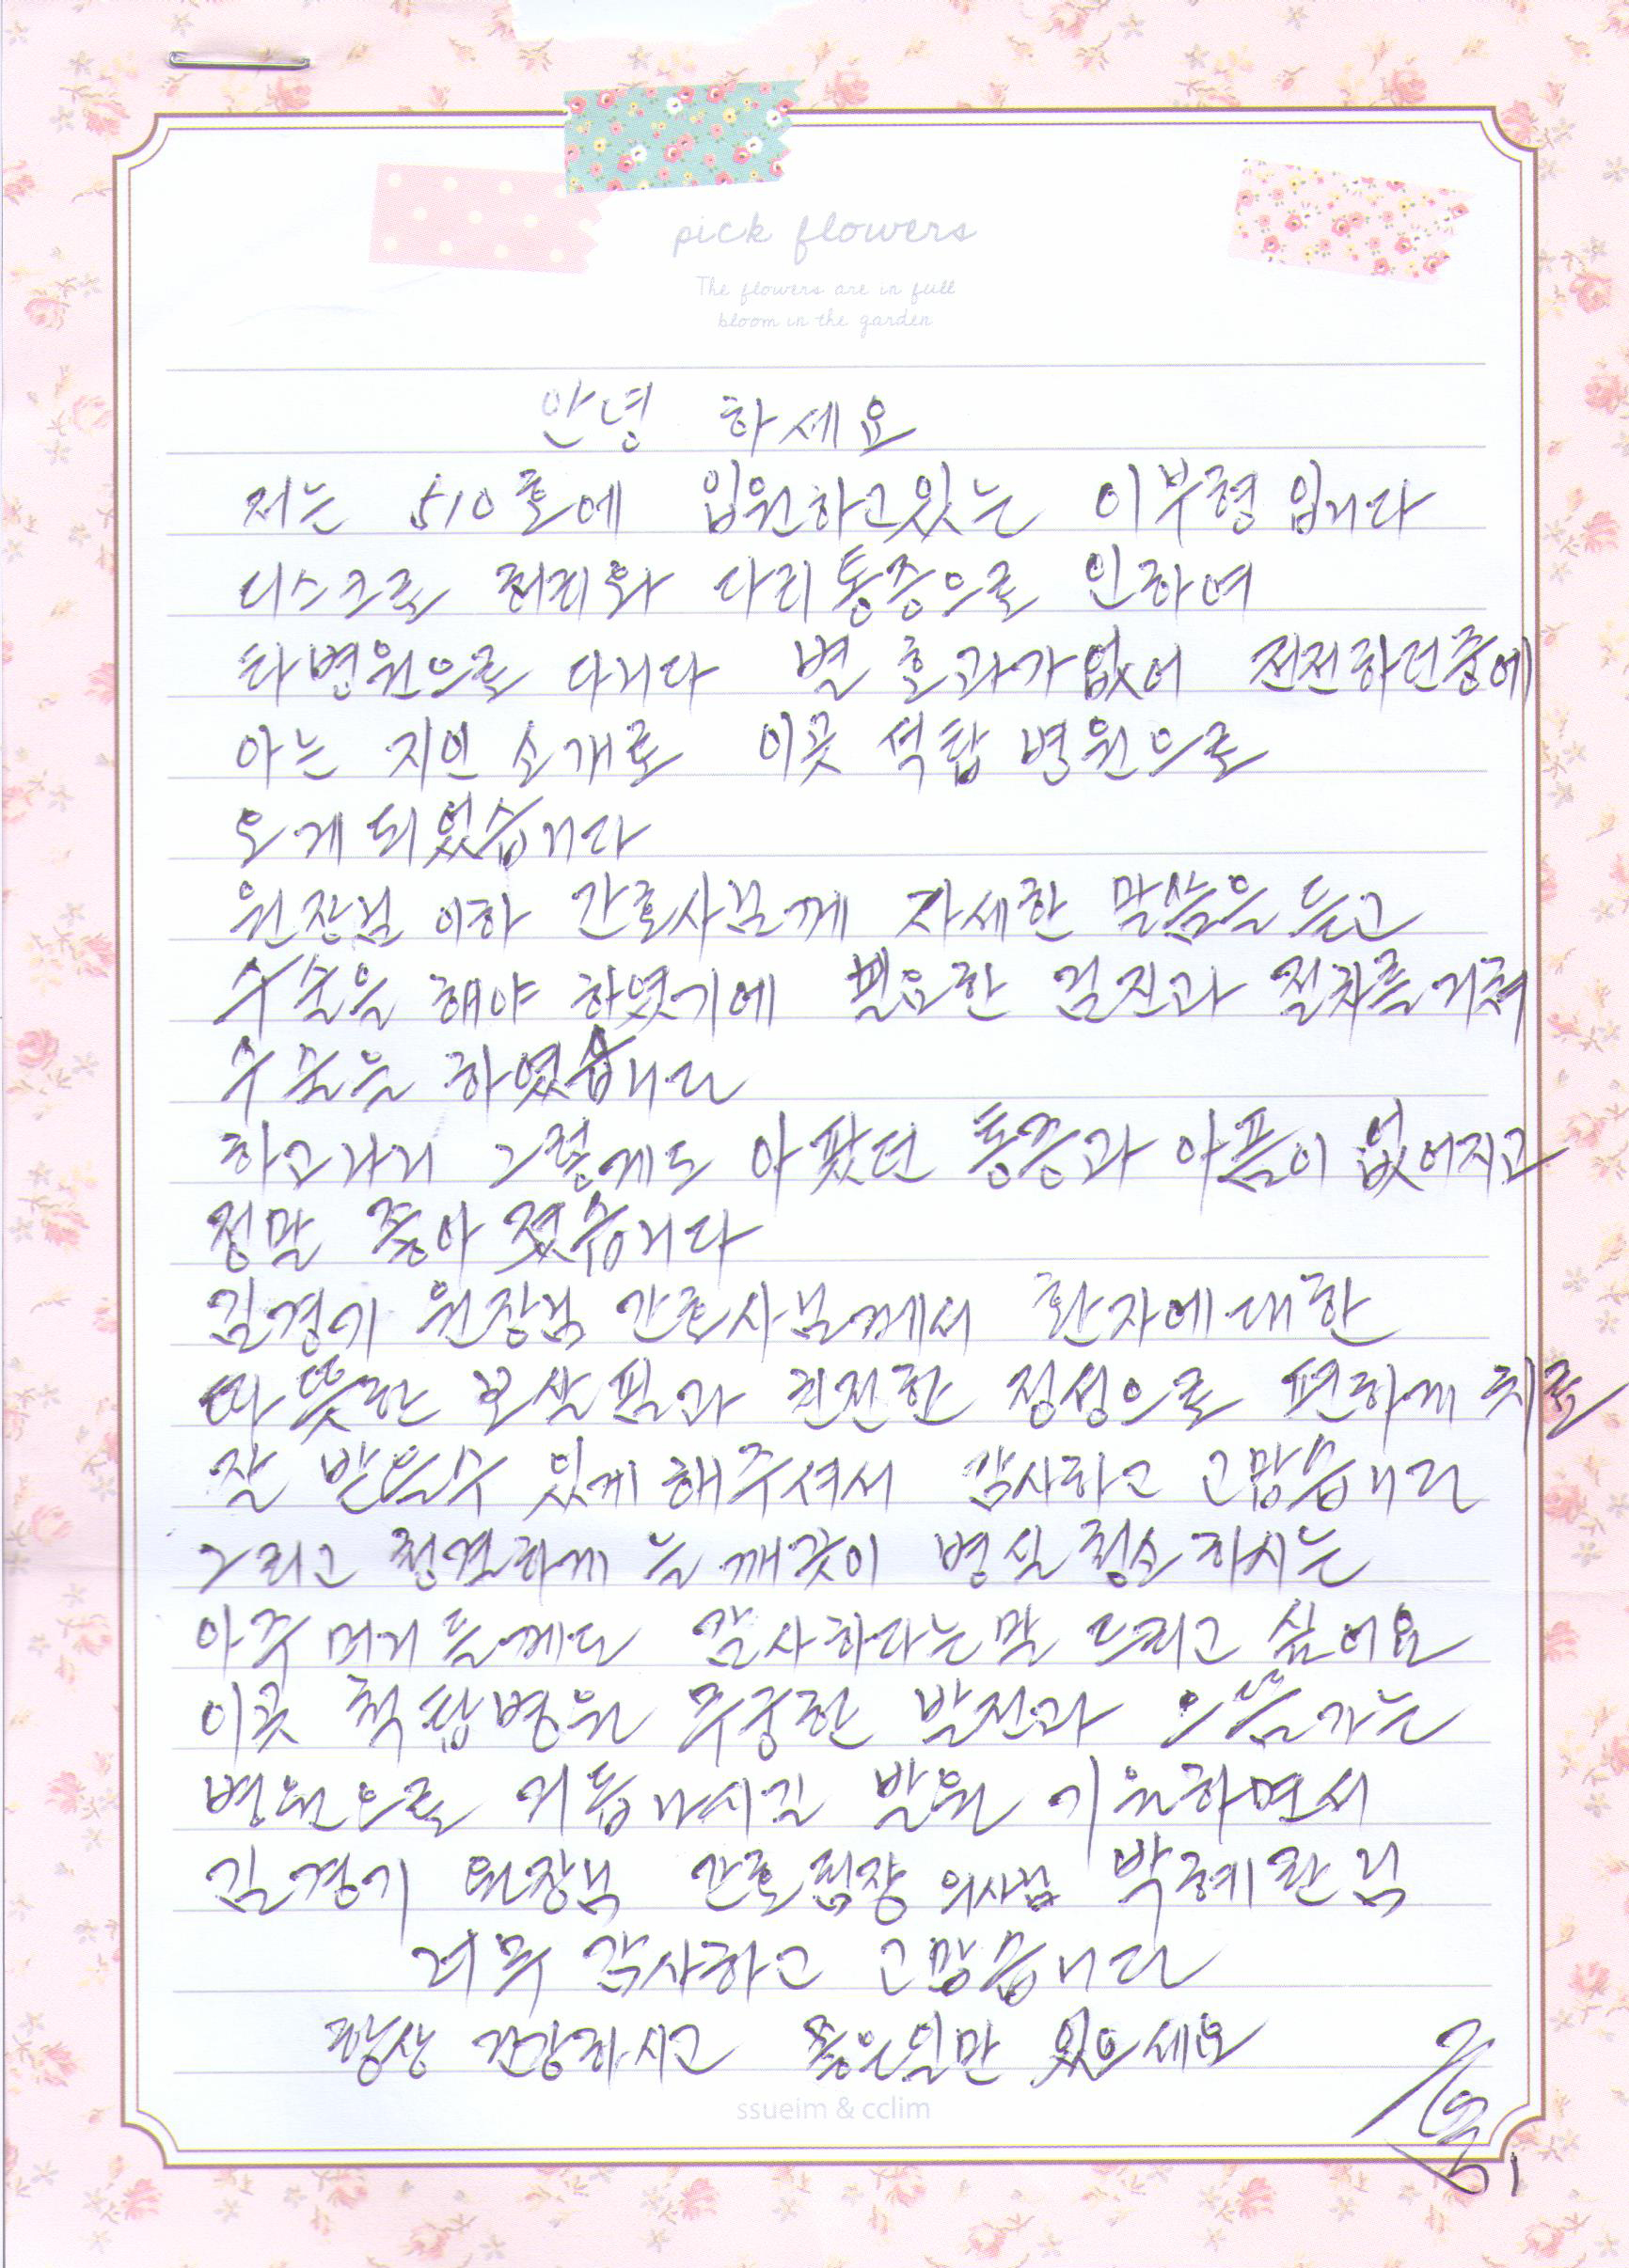 pick flowers
The flowers are in full
bloom in the garden
안녕 하세요
저는 510호에 입원하고있는 이부형 입니다
디스크로 허리와 다리통증으로 인하여
타병원으로 다니다 별 효과가없어 전전하던중에
아는 지인 소개로 이곳 석탑 병원으로
오게되었습니다
원장님 이하 간호사님께 자세한 말씀을 듣고
수술을 해야 하였기에 필요한 검진과 절차를거쳐
수술을 하였습니다
하고나니 그렇게도 아팠던 통증과 아픔이 없어지고
정말 좋아 졌습니다
김경기 원장님 간호사님께서 환자에대한
따뜻한 보살핌과 친절한 정성으로 편하게 치료
잘 받을수 있게해주셔서 감사하고 고맙습니다
그리고 청결하게 늘깨끗이 병실청소하시는
아주머니들께도 감사하다는말 드리고 싶어요
이곳 척탑병원 무궁한 발전과 으뜸가는
병원으로 거듭나시길 발원 기원하면서
김경기 원장님 간호팀장 의사님 박혜란님
너무 감사하고 고맙습니다
항상 건강하시고 좋은일만 있으세요
ssueim & cclim